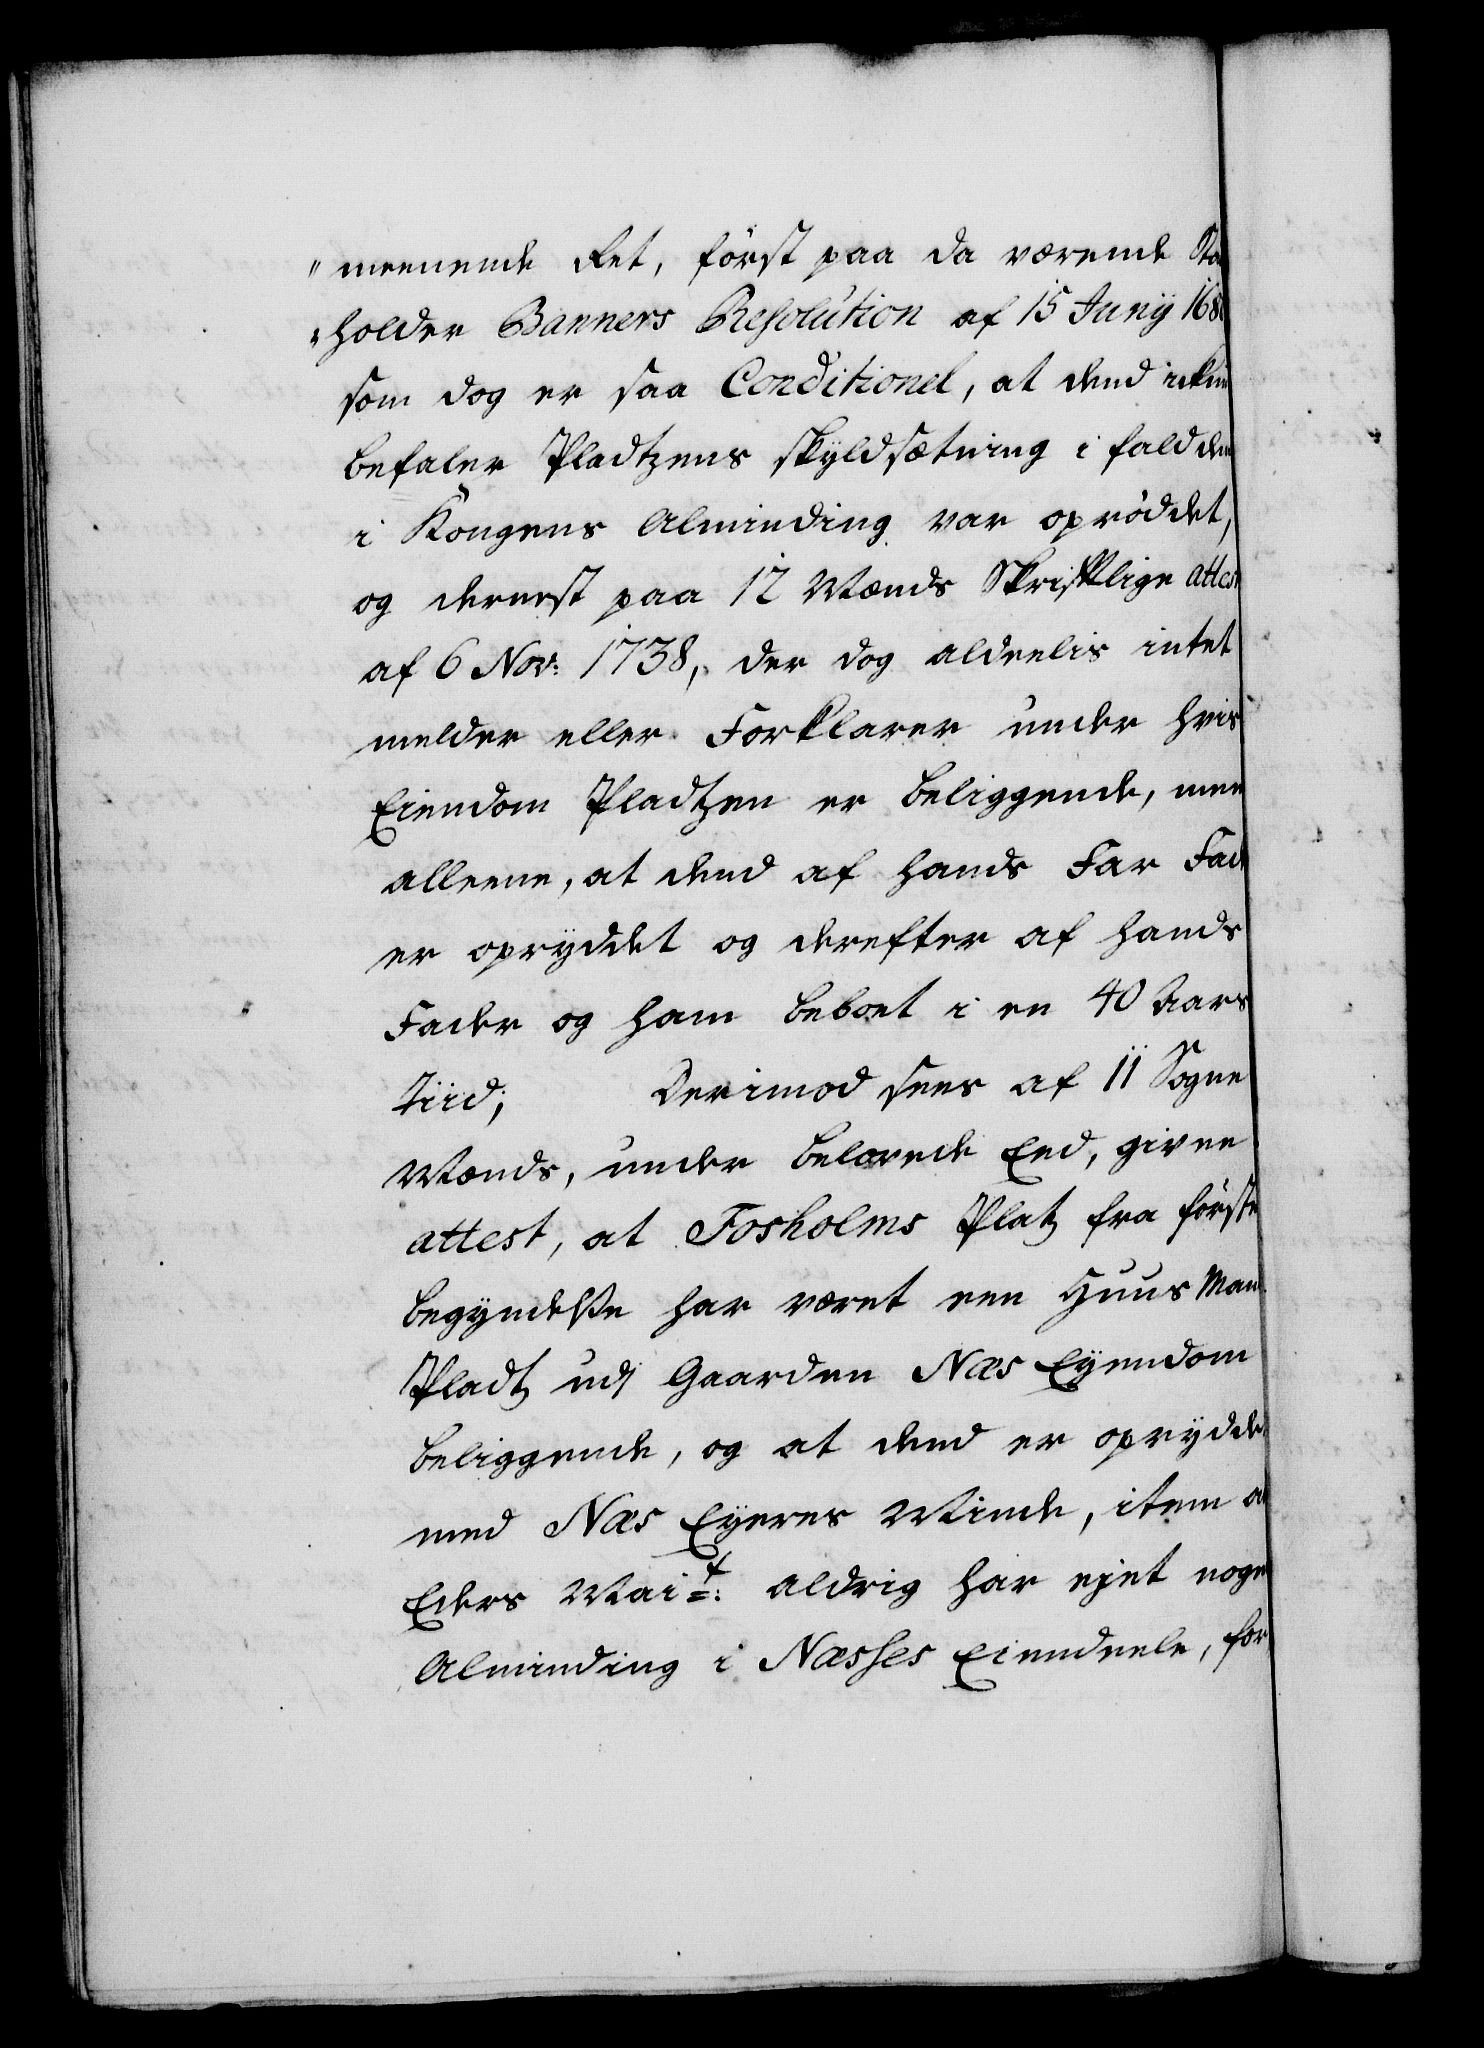 "meenende Ret, først paa da værende Sta
"holder Banners Resolution af 15 Junij 168
som dog er saa Conditionel, at dend icke
befaler Pladtzens skyldsætning i fald den
i Kongens Alminding var oprøddet,
og dernest paa 12 Mænds Skriftlige attest
af 6 Nov: 1738, der dog aldeelis intet
melder eller Forklarer under hvis
Eiendom Pladtzen er beliggende, men
alleene, at dend af hands Far Fad
er opryddet og derefter af hands
Fader og ham beboet i en 40 Aars
Tiid; Derimod sees af 11 Sogne
Mænds, under belovede Eed, givne
attest, at Fosholms Platz fra første
begyndelse har været een Huus Man
Pladtz udj Gaarden Næs Eyendom
beliggende, og at dend er oprydde
med Næs Eyeres Minde, item a
Eders Mait: aldrig har ejet noge
Alminding i Næsses Eiendeele, for